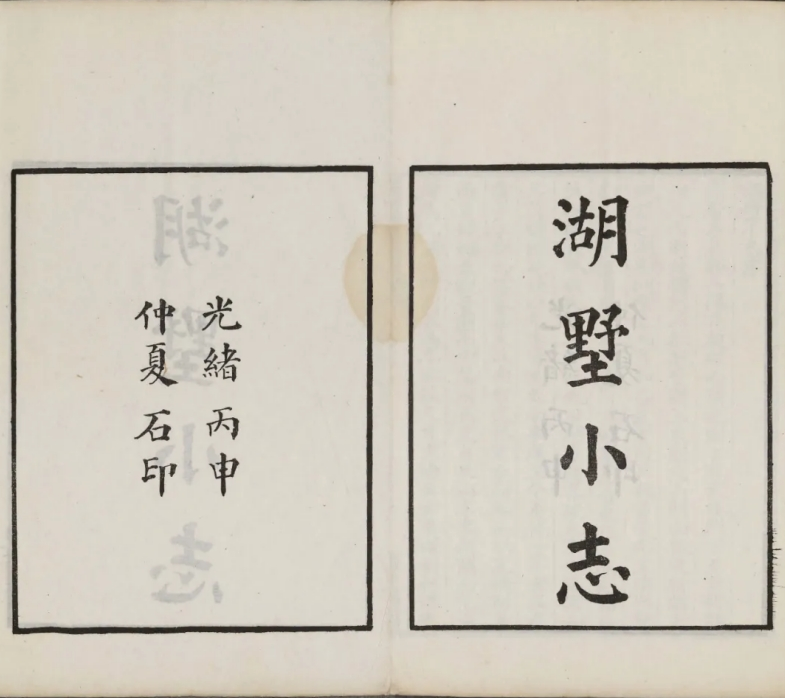 湖墅小志
光緒丙申
仲夏石印